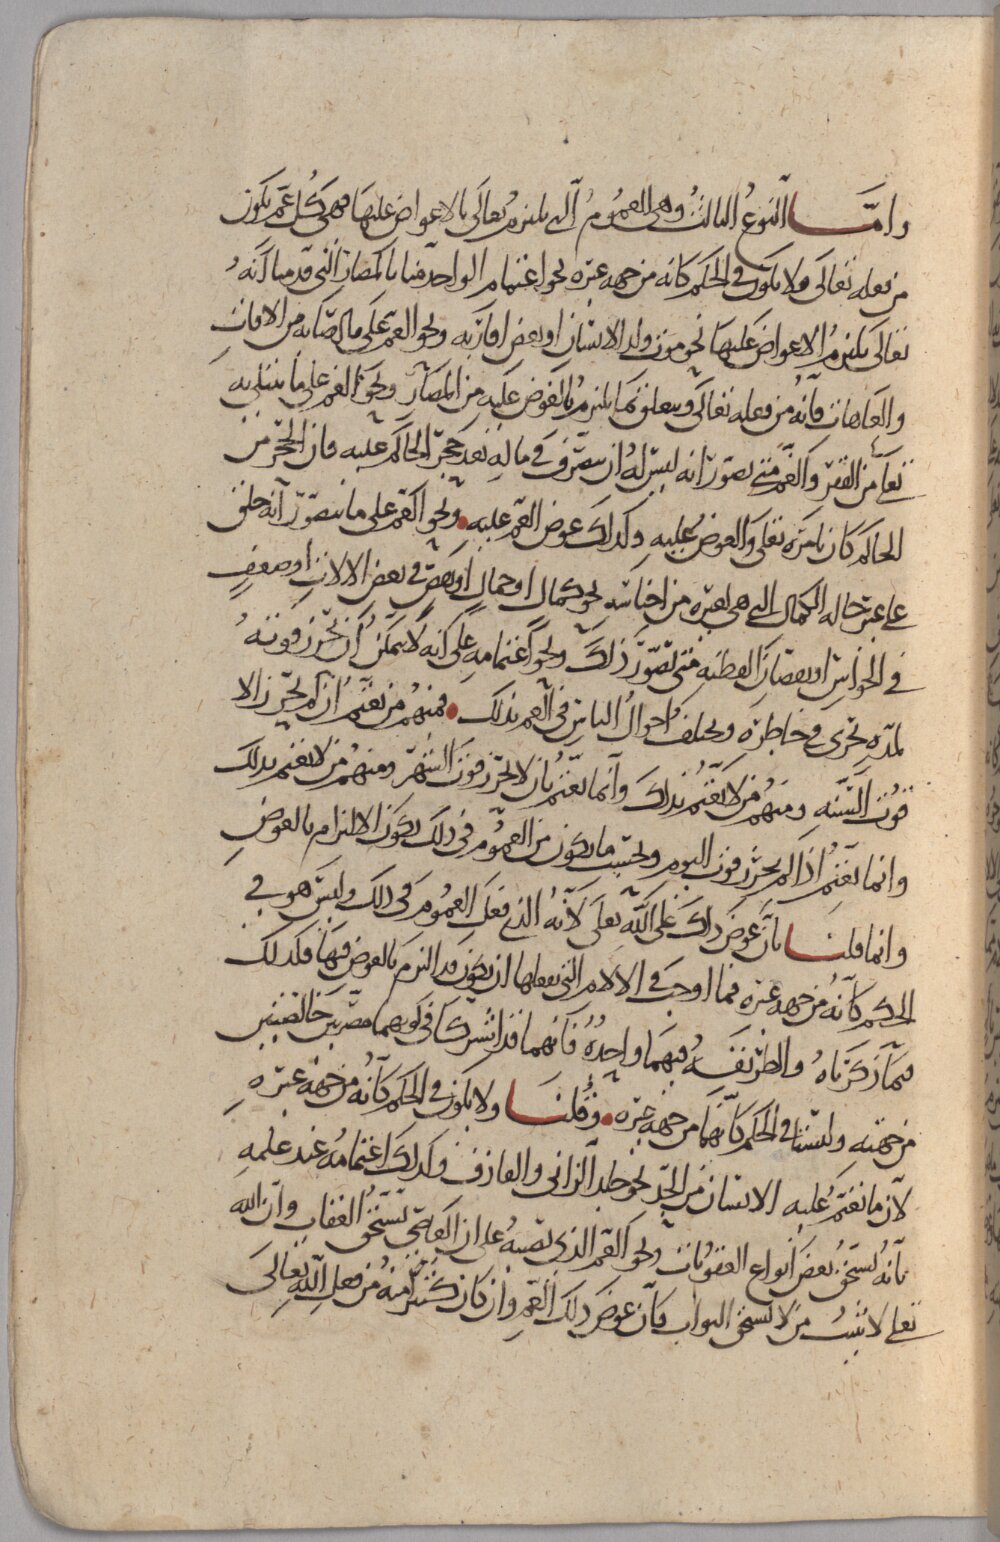 واما النوع الثالث وهى الغموم التى يلتزم تعالى بالاعواض عليها فهى كل غم يكون
من فعله تعالى ولا يكون فى الحكم كانه من جهه غيره نحو اغتمام الواحد منا بالمضار التى قدمنا انه
تعالى يلتزم الاعواض عليها نحو موت ولد الانسان او بعض اقاربه ونحو الغم على ما اصابه من الافات
والعاهات فانه من فعله تعالى ومتعلق بما يلتزم بالعوض عليه من المضار ونحو الغم على ما يبتلى به
تعالى من الفقر وكالغم متى تصور انه ليس له ان يتصرف فى ماله بعد حجر الحاكم عليه فان الحجر من
الحاكم كان بامره تعالى والعوض عليه وكذلك عوض الغم عليه ونحو الغم على ما يتصور انه خلق
على غير حاله الكمال التى هى لغيره من اجناسه نحو كمال او جمال او نقص فى بعض الالات او ضعف
فى الحواس او نقصان الفطنه متى تصور ذلك ونحو اغتمامه على انه لا يمكن ان يحرز قوته
لمده تجرى فى خاطره وتختلف احوال الناس فى الغم بذلك فمنهم من يغتم ان لم يحرز الا
قوت السنه ومنهم من لا يغتم بذلك وانما يغتم بان لا يحرز قوت الشهر ومنهم من لا يغتم بذلك
وانما يغتم اذا لم يحرز قوت اليوم وبحسب ما يكون من الغموم فى ذلك يكون الالتزام بالعوض
وانما قلنا بان عوض ذلك على الله تعالى لانه الذى فعل الغموم فى ذلك وليس هو فى
الحكم كانه من جهه غيره فما اوجب فى الالام التى يفعلها ان يكون قد التزم بالعوض فيها فكذلك
فيما ذكرناه والطريقه فيهما واحده فانهما قد اشتركا فى كونهما مضرتين خالصتين
من جهته وليستا فى الحكم كانهما من جهه غيره وقلنا ولا يكون فى الحكم كانه من جهه غيره
لان ما يغتم عليه الانسان من الحد نحو جلد الزانى والقاذف وكذلك اغتمامه عند علمه
بانه يستحق بعض انواع العقوبات ونحو الغم الذى يصيبه على ان العاصى يستحق العقاب وان الله
تعالى لا يثيب من لا يستحق الثواب فان عوض ذلك الغم وان كان كثير منه من فعل الله تعالى